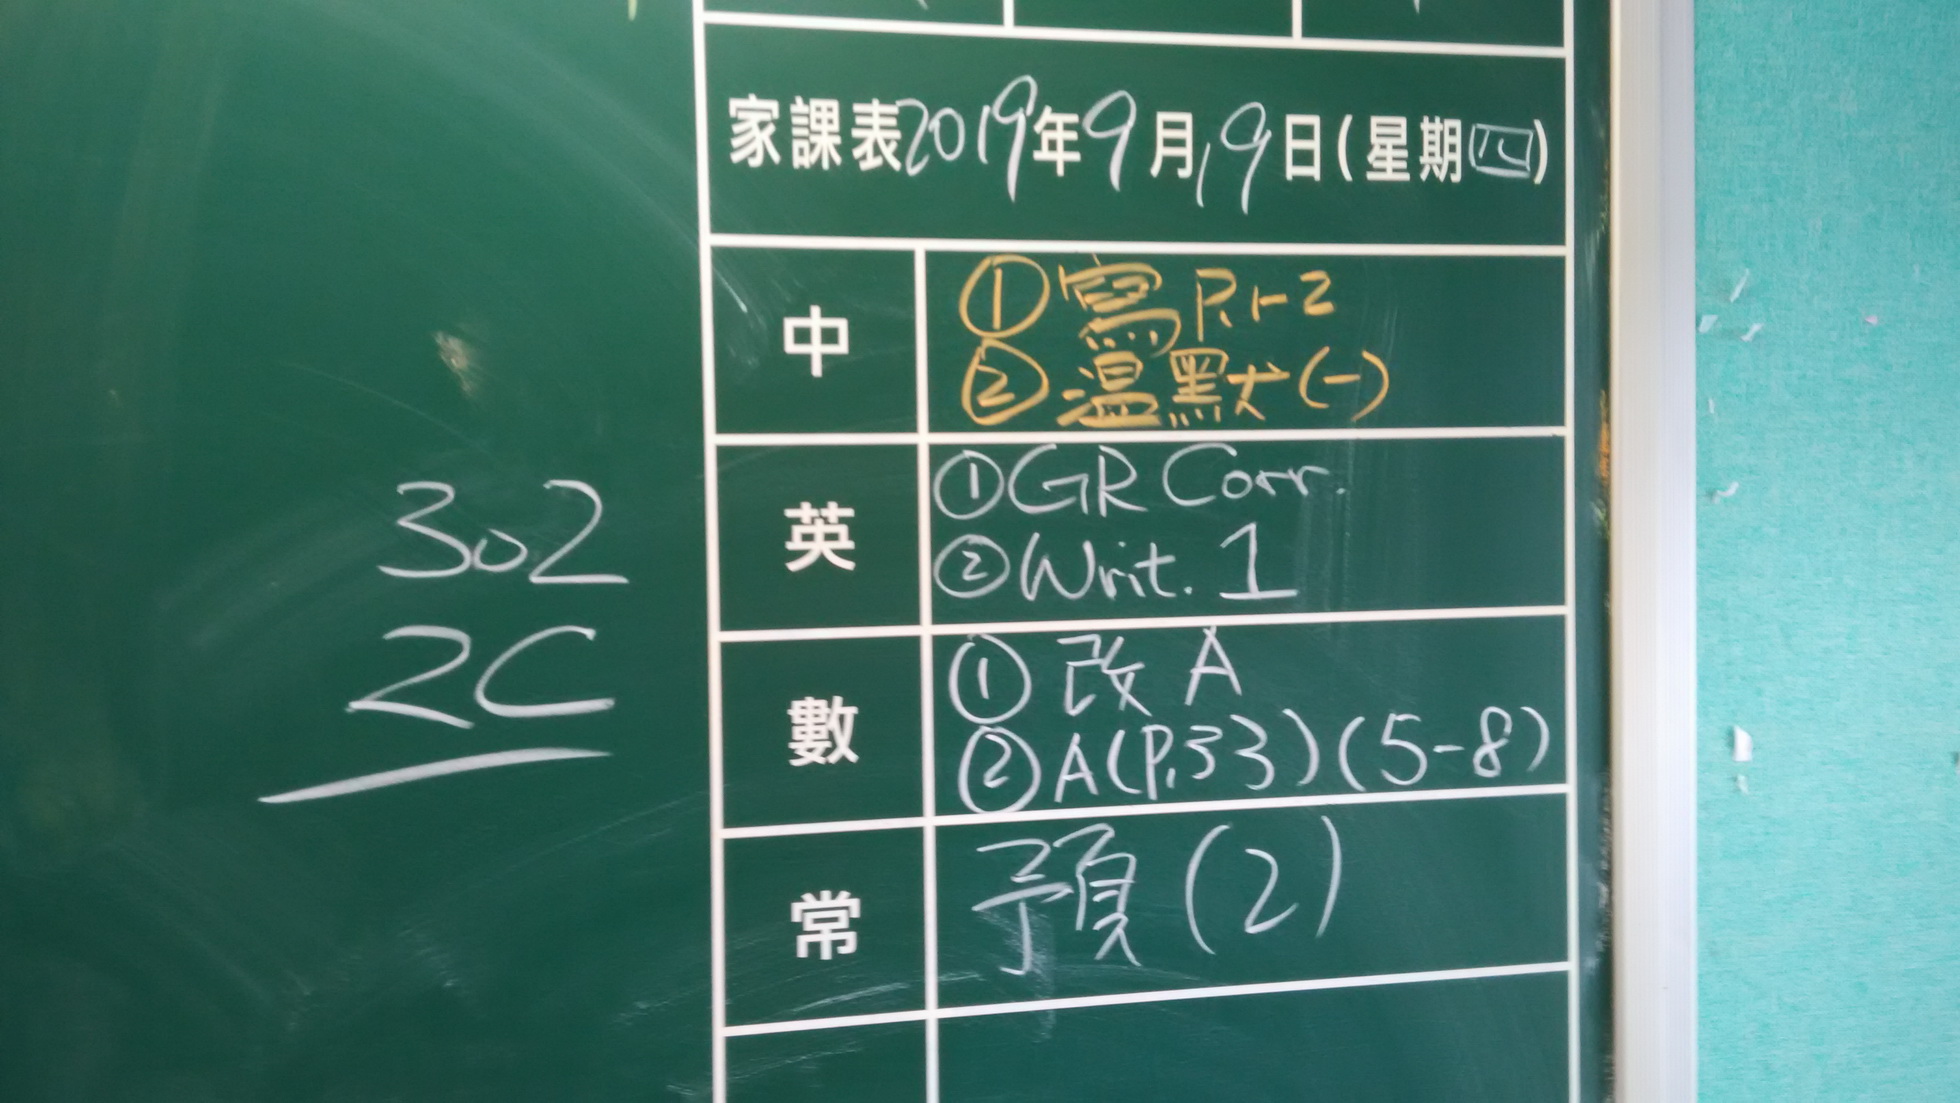 家課表2019年9月19日(星期四)
中
①寫P.1-2
②溫默(一)
英
①GR Corr.
②Writ. 1
數
①改A
②A(P.33)(5-8)
常
預(2)
302
2C